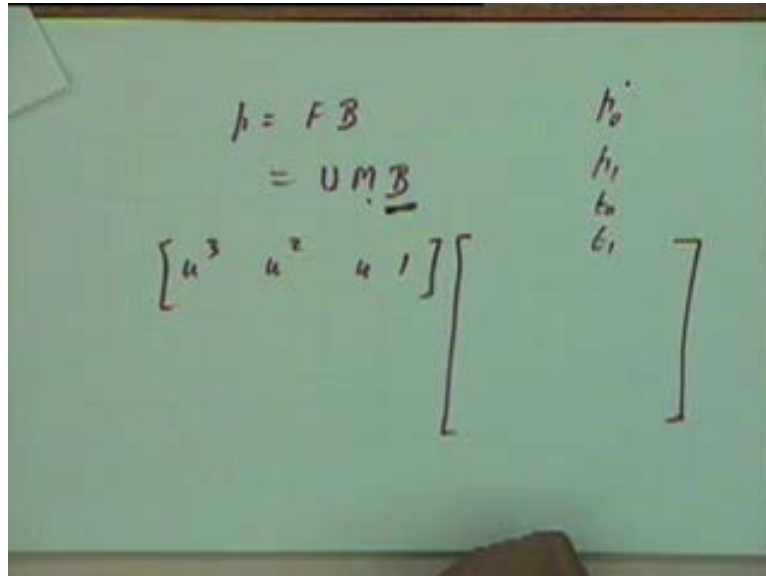 p = F B
= U M B
[u³ u² u 1] [ ]
p₀
p₁
t₀
t₁